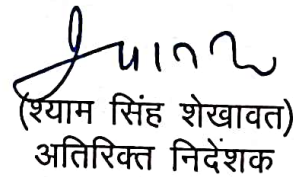 (श्याम सिंह शेखावत)
अतिरिक्त निदेंशक